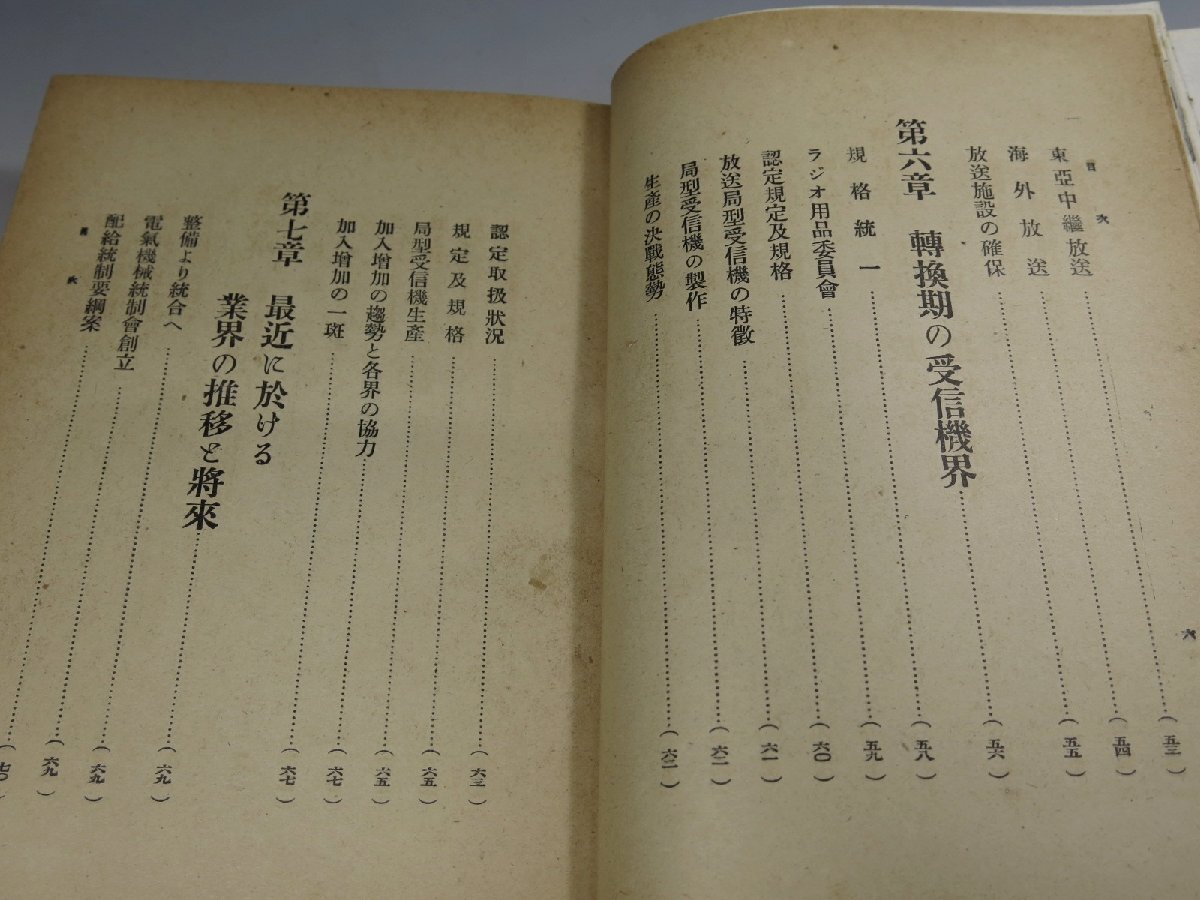 目次
六
東亞中繼放送……(五三)
海外放送……(五四)
放送施設の確保……(五五)
第六章 轉換期の受信機界……(五六)
規格統一……(五八)
ラジオ用品委員會……(五九)
認定規定及規格……(六〇)
放送局型受信機の特徴……(六一)
局型受信機の製作……(六二)
生產の決戰態勢……(六二)
認定取扱狀況……(六三)
規定及規格……(六五)
局型受信機生產……(六五)
加入增加の趨勢と各界の協力……(六七)
加入增加の一斑……(六七)
第七章 最近に於ける
業界の推移と將來……(六九)
整備より統合へ……(六九)
電氣機械統制會創立……(六九)
配給統制要綱案……(七〇)
目次